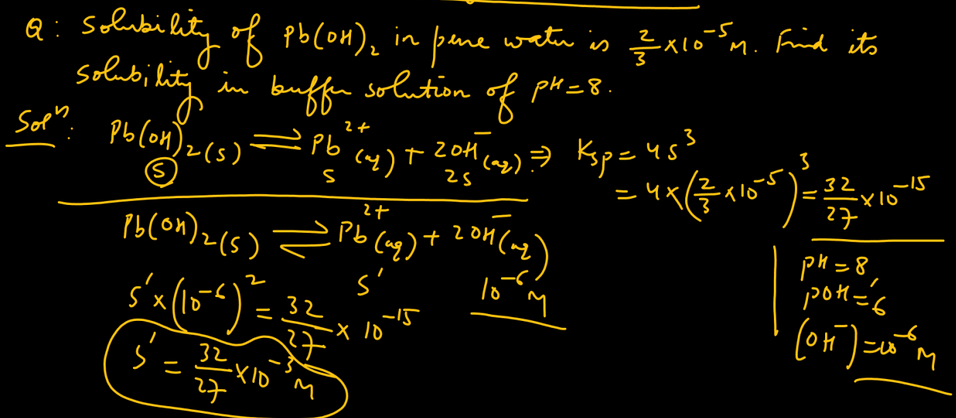 Q: Solubility of Pb(OH)₂ in pure water is 2/3 ×10⁻⁵ M. Find its
solubility in buffer solution of pH=8.
Solⁿ: Pb(OH)₂(s) ⇌ Pb²⁺(aq) + 2OH⁻(aq) ⇒ Ksp = 4s³
S s 2s
= 4×(2/3 ×10⁻⁵)³ = 32/27 ×10⁻¹⁵
Pb(OH)₂(s) ⇌ Pb²⁺(aq) + 2OH⁻(aq)
s' 10⁻⁶ M
pH=8
pOH=6
(OH⁻)=10⁻⁶ M
s'×(10⁻⁶)² = 32/27 × 10⁻¹⁵
s' = 32/27 ×10⁻³ M